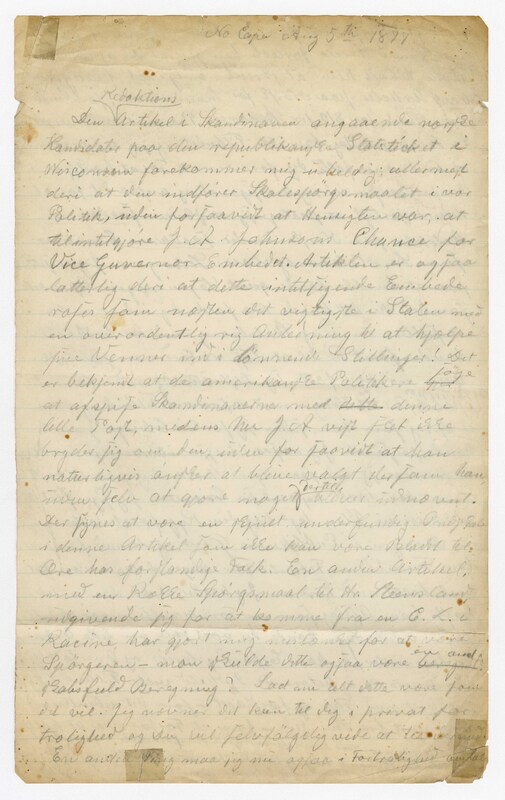 No Cape Aug 5th 1877
Redaktions
Den Artikel i Skandinaven angaaende norske
Kandidater paa den republikanske Stateticket i
Wisconsin forekommer mig uheldig, allermest
deri at den indfører Skolespørgsmaalet i vor
Politik, uden forsaavidt at Hensigten var, at
tilintetgjøre J. A. Johnsons Chance for
Vice Guvernør Embedet. Artiklen er ogsaa
latterlig deri at dette intetsigende Embede
roses som næsten det vigtigste i Staten med
en overordentlig rig Anledning til at hjælpe
sine Venner ind i lønnende Stillinger! Det
er bekjendt at de amerikanske Politikere søge
at afspise Skandinaverne med dette denne
lille Post, medens Mr J. A. vist slet ikke
bryder sig om den, uden for saavidt at han
naturligvis ønsker at blive valgt dersom han
uden selv at gjøre noget bliver udnævnt.
Der synes at være en skjult underfundig
i denne Artikel som ikke kan være
Øre har forstandige Folk. En anden Artikel,
med en Række Spørgsmaal til Hr. Steensland
udgivende sig for at komme fra en C. L. i
Racine har gjort mig mistænkt for at være
Spørgeren – mon skulde dette ogsaa være en
Beregning? Lad nu alt dette være som
det vil. Jeg nævner det kun til dig i privat For
trolighed og Du vil selvfølgelig vide at
En anden Ting maa jeg nu ogsaa i Fortrolighed